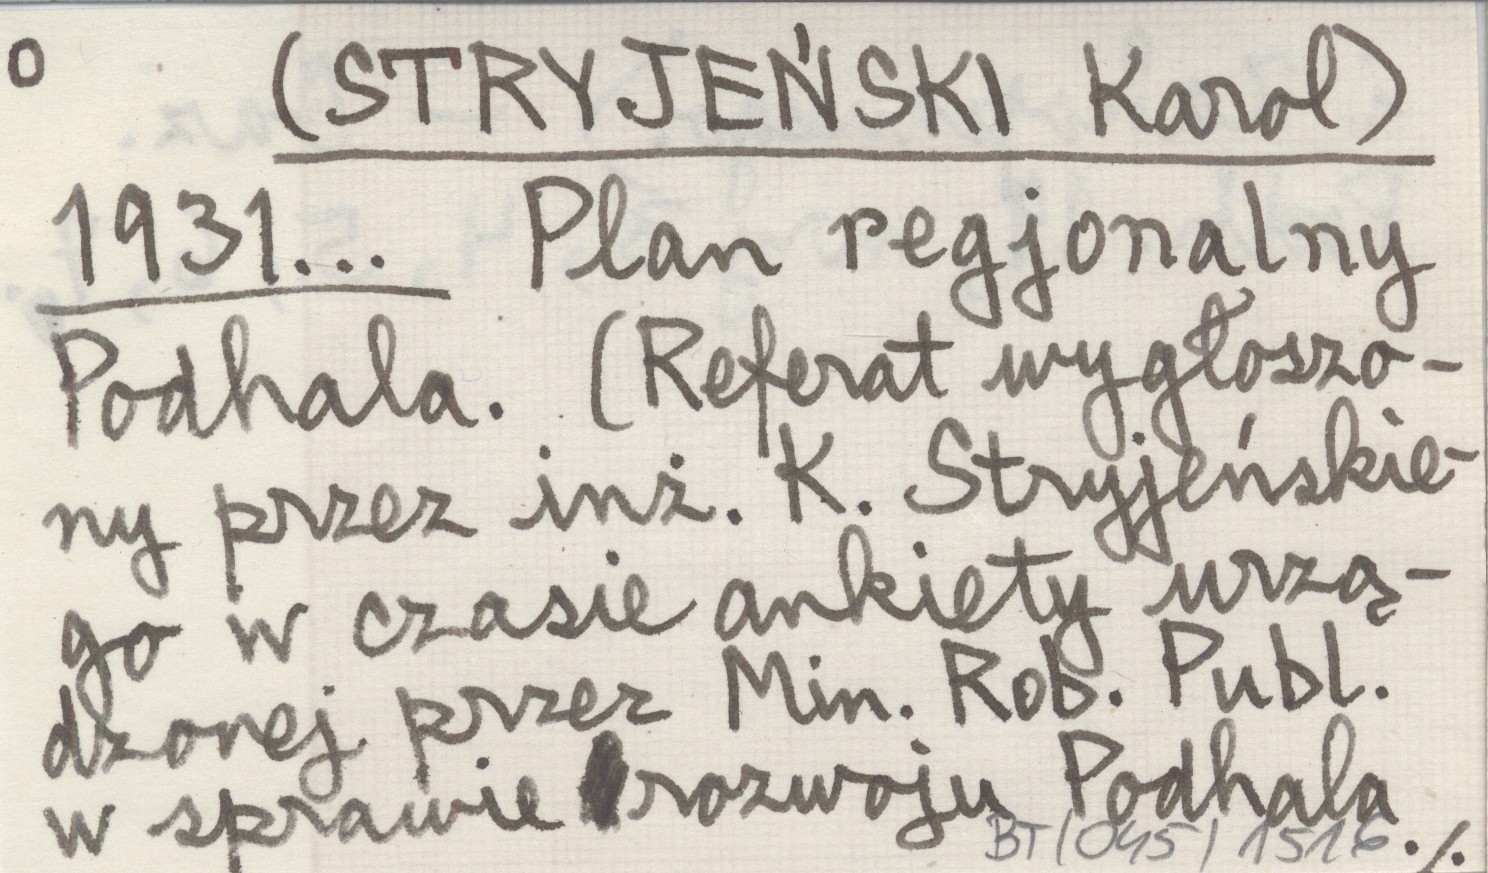 o (STRYJEŃSKI Karol)
1931... Plan regjonalny
Podhala. (Referat wygłoszo-
ny przez inż. K. Stryjeńskie-
go w czasie ankiety urzą-
dzonej przez Min. Rob. Publ.
w sprawie rozwoju Podhala
BT/045/1516 ./.